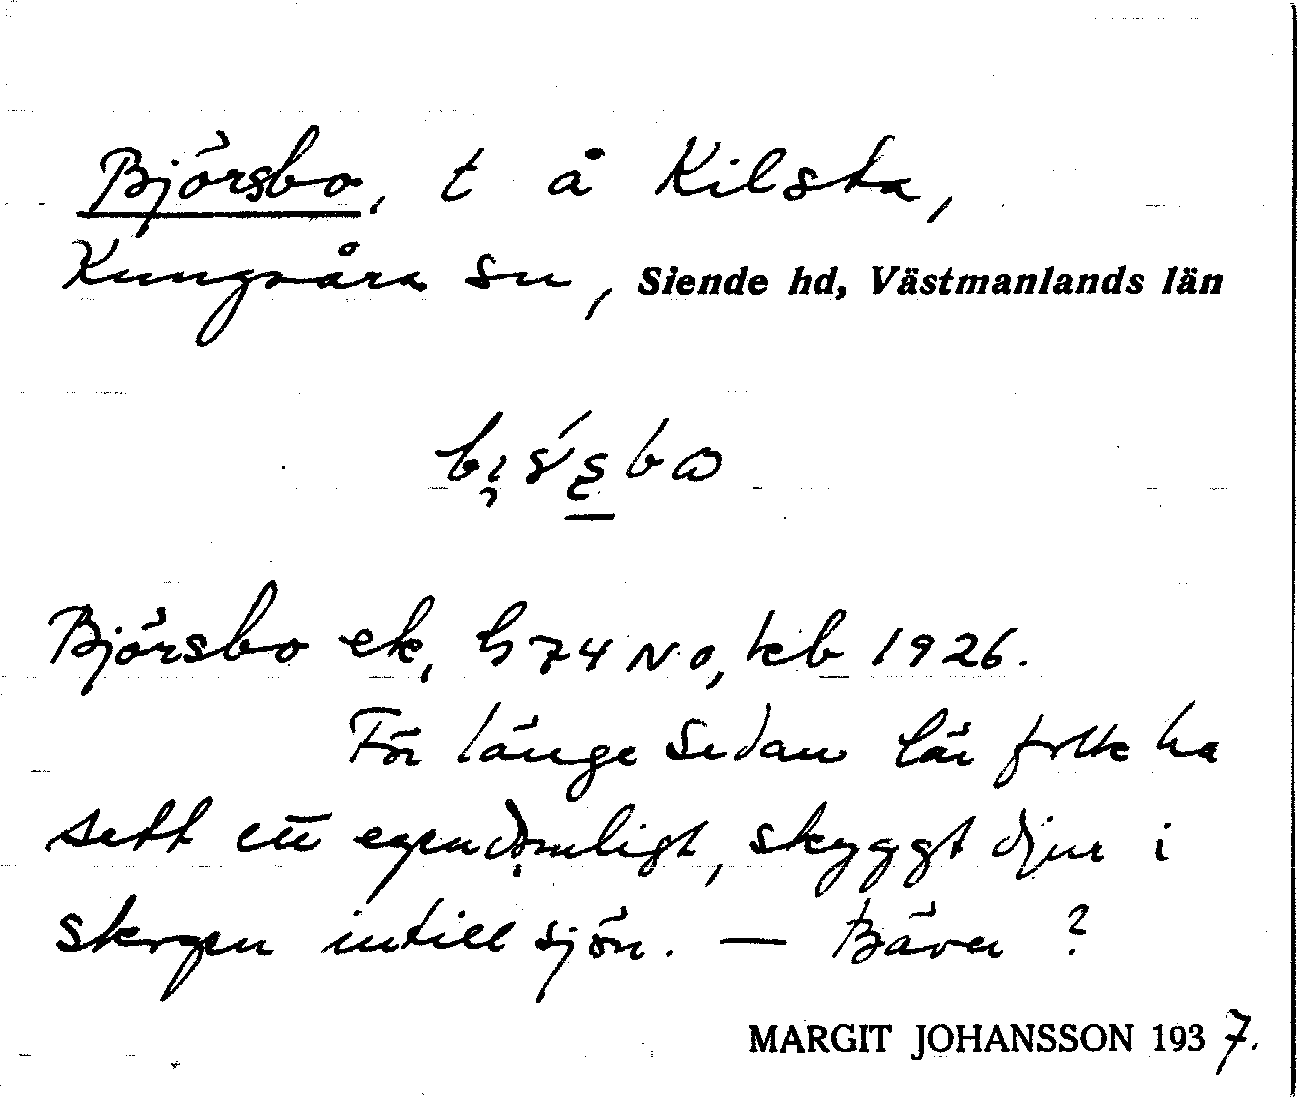 Björsbo, t å Kilsta,
Kungsåra sn, Siende hd, Västmanlands län
Björsbo ek, h 74 NO, kb 1926.
För länge sedan lär folk ha
sett ett egendomligt, skyggt djur i
skogen intill sjön. — Bäver ?
MARGIT JOHANSSON 1937.